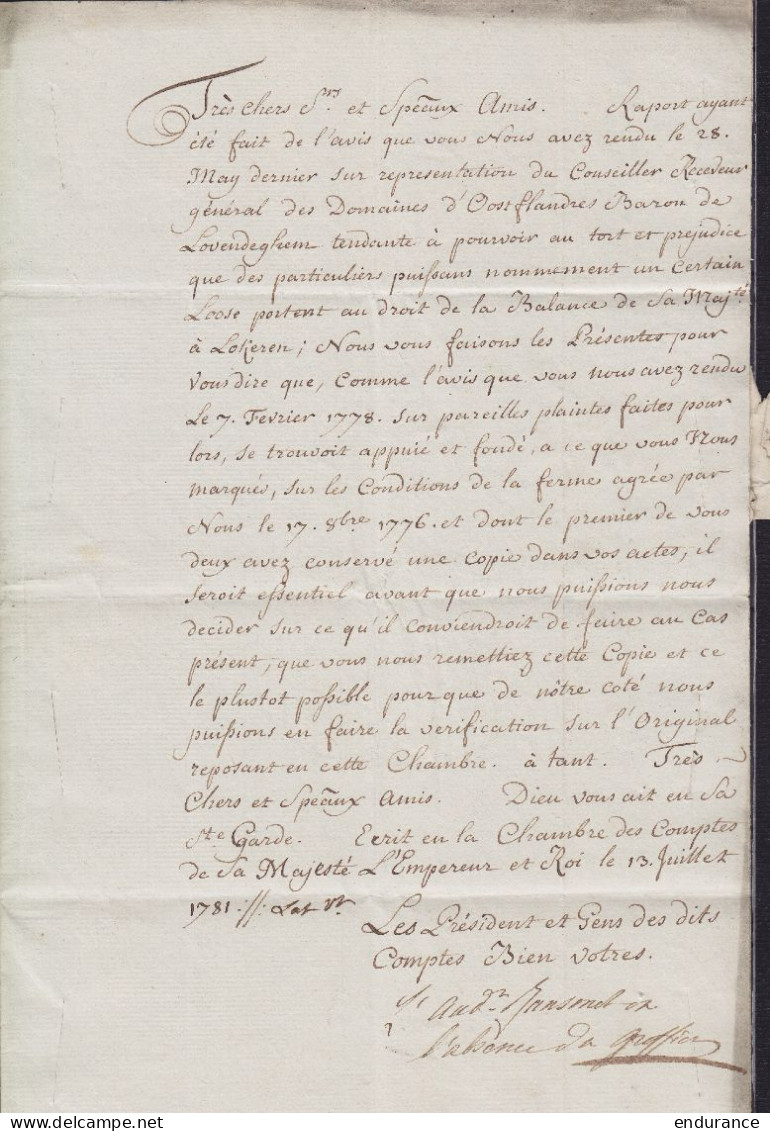 Très Chers Srs et Speāux Amis. Raport ayant
été fait de l'avis que vous Nous avez rendu le 28.
May dernier sur representation du Conseiller Receveur
général des Domaines d'Oostflandres Baron de
Lovendeghem tendante à pourvoir au tort et prejudice
que des particuliers puissans nommement un Certain
Loose portent au droit de la Balance de Sa Majté
à Lokeren; Nous vous faisons les Présentes pour
Vous dire que, Comme l'avis que vous nous avez rendu
Le 7. Fevrier 1778. sur pareilles plaintes faites pour
lors, se trouvoit appuié et fondé, a ce que vous Nous
marqués, sur les Conditions de la ferme agrée par
Nous le 17. 8bre 1776. et dont le premier de vous
deux avez conservé une copie dans vos actes, il
seroit essentiel avant que nous puissions nous
decider sur ce qu'il conviendroit de faire au Cas
présent, que vous nous remettiez cette Copie et ce
le plustot possible pour que de nôtre coté nous
puissions en faire la verification sur l'Original
reposant en cette Chambre. à tant. Très
Chers et Speāux Amis. Dieu vous ait en Sa
Ste Garde. Ecrit en la Chambre des Comptes
de Sa Majesté L'Empereur et Roi le 13. Juillet
1781
Les Président et Gens des dits
Comptes Bien votres.
l'absence du Greffier
endurance